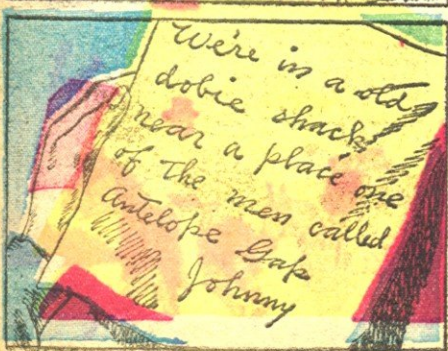 We're in a old
dobie shack
near a place one
of the men called
Antelope Gap
Johnny